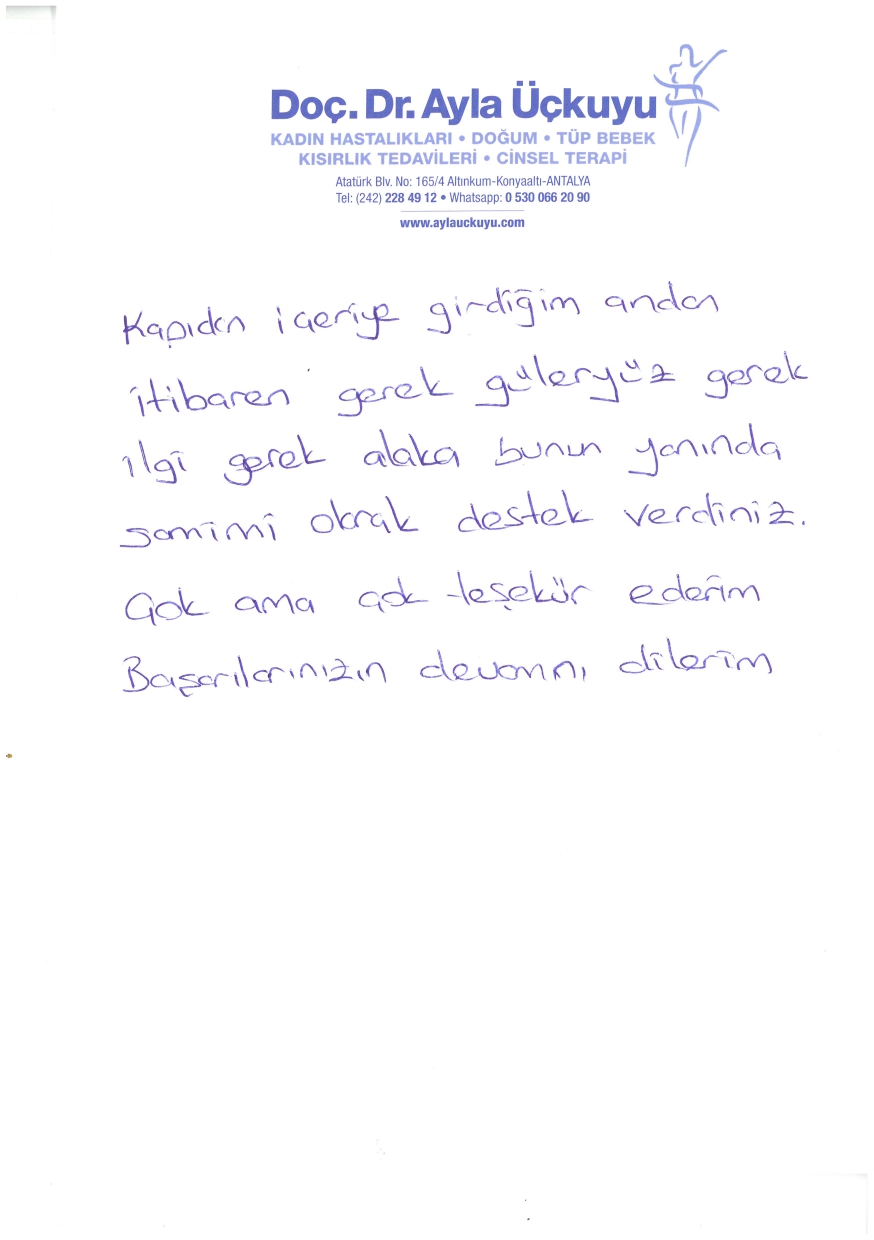 Doç. Dr. Ayla Üçkuyu
KADIN HASTALIKLARI • DOĞUM • TÜP BEBEK
KISIRLIK TEDAVİLERİ • CİNSEL TERAPİ
Atatürk Blv. No: 165/4 Altınkum-Konyaaltı-ANTALYA
Tel: (242) 228 49 12 • Whatsapp: 0 530 066 20 90
www.aylauckuyu.com
Kapıdan içeriye girdiğim andan
itibaren gerek güleryüz gerek
ilgi gerek alaka bunun yanında
samimi olarak destek verdiniz.
Çok ama çok teşekür ederim
Başarılarınızın devamnı dilerim